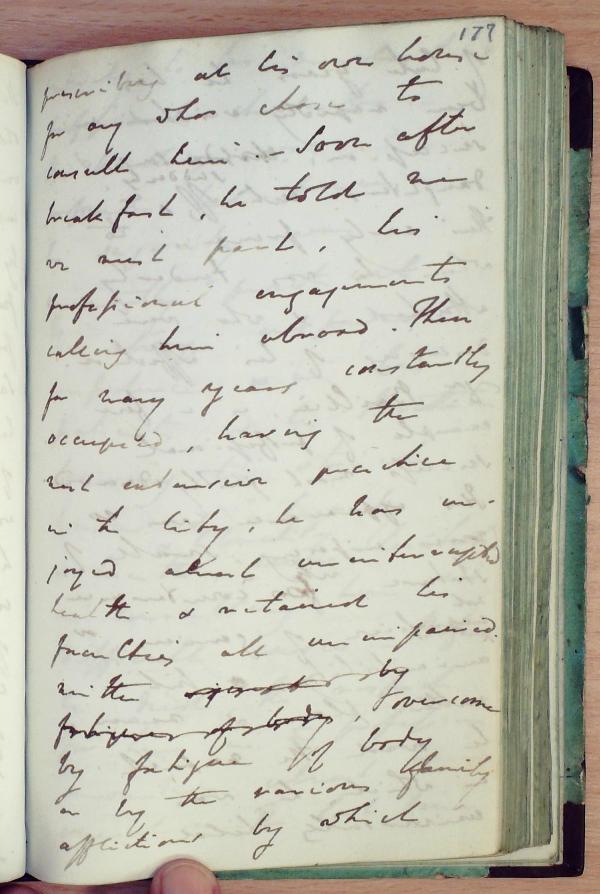 177
prescribing at his own house
for any who chose to
consult him. – Soon after
breakfast, he told me
we must part, his
professional engagements
calling him abroad. Thus
for many years constantly
occupied, having the
most extensive practice
in the City, he has en-
joyed almost uninterrupted
health & retained his
faculties all unimpaired.
neither by
fatigues of body, overcome
by fatigue of body
or by the various family
afflictions by which